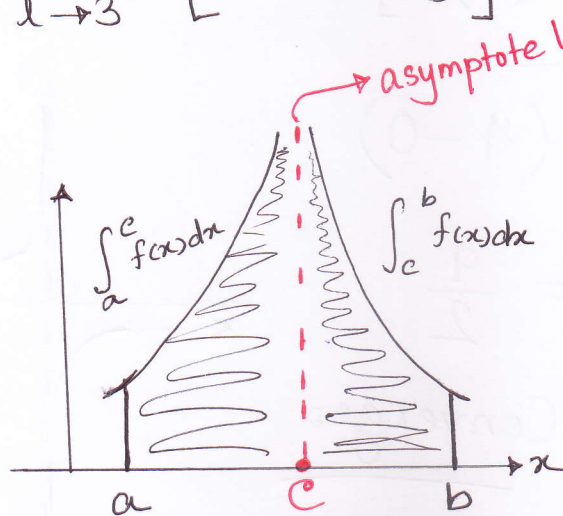 l → 3 [ ]
asymptote
∫ₐᶜ f(x)dx
∫ᶜᵇ f(x)dx
x
a c b